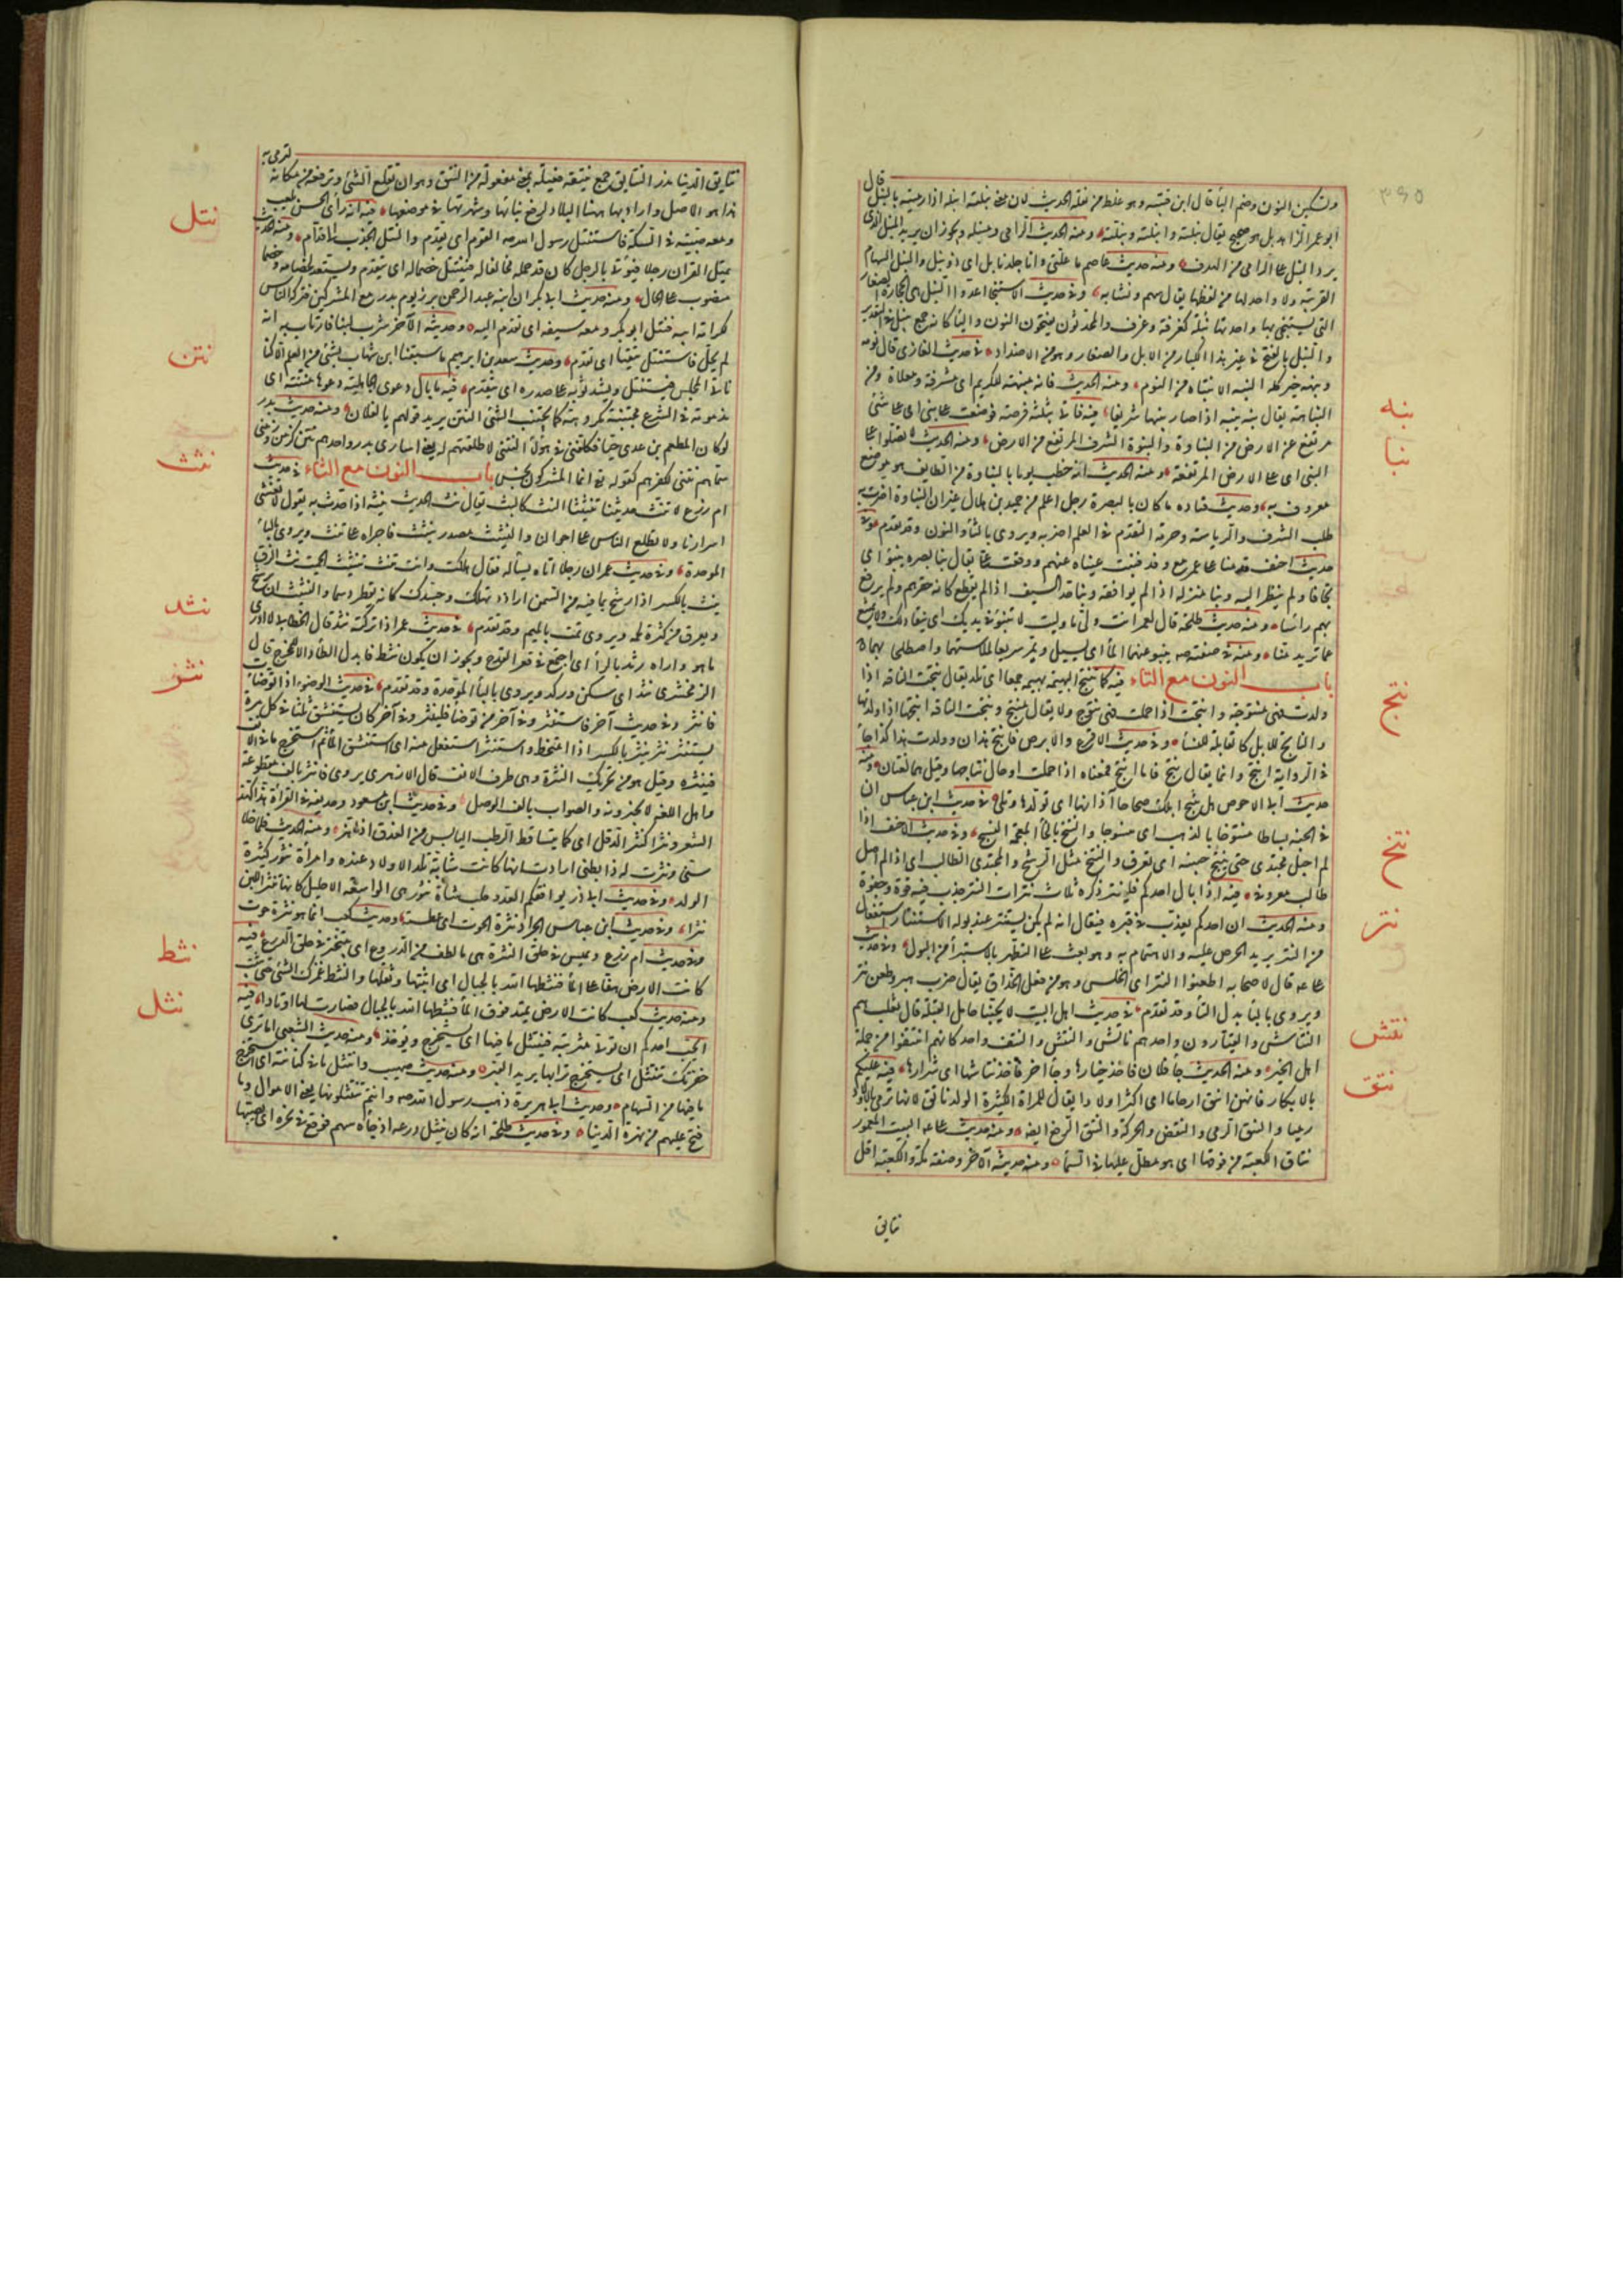 قال
وتسكين النون وضم الباء قال ابن قتيبة وهو غلط من نقلة الحديث لان معنى نبلته انبله اذا رميته بالنبل
ابو عمر الزاهد بل هو صحيح يقال نبلته وانبلته ونبلته ومنه الحديث الرامي ومنبله ويجوز ان يريد بالمنبل الذي
يرد النبل على الرامي من الهدف ومنه حديث عاصم ما علتي وانا جلد نابل اي ذو نبل والنبل السهام
العربية ولا واحد لها من لفظها يقال سهم ونشابة وفي حديث الاستنجاء اعدوا النبل هي الحجارة الصغار
التي يستنجى بها واحدتها نبلة كغرفة وغرف والمحدثون يفتحون النون والباء كانه جمع نبيل في التقدير
والنبل بالفتح في غير هذا الكبار من الابل والصغار وهو من الاضداد في حديث الغازي قال نومه
ونبهه خير كله النبه الانتباه من النوم ومنه الحديث فانه منبهة للكريم اي مشرفة ومعلاة من
النباهة يقال نبه ينبه اذا صار نبيها شريفا فيه فاتي بثلثة قرصة فوضعت على نبي اي على شئ
مرتفع عن الارض من النباوة والنبوة الشرف المرتفع من الارض ومنه الحديث لا تصلوا على
النبي اي على الارض المرتفعة ومنه الحديث انه خطب يوما بالنباوة من الطايف هو موضع
معروف به وحديث قتاده ما كان بالبصرة رجل اعلم من حميد بن هلال غير ان النباوة اضرت به
طلب الشرف والرياسة وحرمة التقدم في العلم اضر به ويروى بالتاء والنون وقد تقدم
حديث احنف قدمنا على عمر مع وفد فنبت عيناه عنهم ووقعت علي يقال نبا بصره ينبو اي
تجافى ولم ينظر اليه ونبا به منزله اذا لم يوافقه ونبا حد السيف اذا لم يقطع كانه حقرهم ولم يرفع
بهم راسا ومنه حديث طلحة قال لعمر انت ولي ما وليت لا ننبو في يديك اي ننقاد لك ولا نمتنع
عما تريد منا ومنه في صفته صه ينبو عنهما الماء اي يسيل ويمر سريعا لملاستهما واصطلى بهما
باب النون مع التاء فيه كما تنتج البهيمة بهيمة جمعا اي تلد يقال نتجت الناقة اذا
ولدت فهي منتوجة وانتجت اذا حملت فهي نتوج ولا يقال منتج ونتجت الناقة انتجها اذا ولدتها
والناتج للابل كالقابلة للنساء وفي حديث الاقرع والابرص فانتج هذان وولد هذا كذا جاء
في الرواية انتج وانما يقال نتج فاما انتج فمعناه اذا حملت او حان نتاجها وقيل هما لغتان ومنه
حديث ابي الاحوص هل تنتج ابلك صحاحا آذانها اي تولدها وتلي في حديث ابن عباس ان
في الجنة بساطا منتوخا بالذهب اي منسوجا والنتخ بالخاء المعجمة النسج وفي حديث الاحنف اذا
لم اجل مجتدي حتى ينتح جبينه اي يعرق والنتح مثل الرشح والمجتدي الطالب اي اذا لم اصل
طالب معروفي فيه اذا بال احدكم فلينتر ذكره ثلاث نترات النتر جذب فيه قوة وجفوة
ومنه الحديث ان احدكم يعذب في قبره فيقال انه لم يكن يستنتر عند بوله الاستنتار استفعال
من النتر يريد الحرص عليه والاهتمام به وهو بعث على التطهر بالاستبراء من البول وفي حديث
علي قال لاصحابه اطعنوا النتر اي الخلس وهو من فعل الحذاق يقال ضرب هبر وطعن نتر
ويروى بالباء بدل التاء وقد تقدم في حديث اهل البيت لا يحبنا حامل القبلة قال ثعلب هم
النتاش والعيارون واحدهم ناتش والنتش والنتف واحد كانهم انتتفوا من جملة
اهل الخير ومنه الحديث جاء فلان فاخذ خيارها وجاء اخر فاخذ نتاشها اي شرارها فيه عليكم
بالابكار فانهن انتق ارحاما اي اكثر اولادا يقال للمراة الكثيرة الولد ناتق لانها ترمي بالاولاد
رميا والنتق الرمي والنفض والحركة والنتق الرفع ايضا ومنه حديث علي البيت المعمور
نتاق الكعبة من فوقها اي هو مطل عليها في السماء ومنه حديثه الاخر وصفته مكة والكعبة اقل
نتايق
نبه
نبا
نتج
نتح
نتر
نتش
نتق
٣٤٥
لترمي به
نتايق الدنيا مدرا النتايق جمع نتيقة فعيلة بمعنى مفعولة من النتق وهو ان تقلع الشئ وترفعه من مكانه
هذا هو الاصل واراد بها ههنا البلاد لرفع بنائها وشهرتها في موضعها فيه انه راى الحسن يلعب
ومعه صبية في السكة فاستنتل رسول الله صه امام القوم اي تقدم والنتل الجذب الى قدام ومنه الحديث
يمثل القران رجلا فيؤتى بالرجل كان قد حمله مخالفا له فينتتل خصما له اي يتقدم ويستعد لخصامه وخصما
منصوب على الحال ومنه حديث ابي بكر ان ابنه عبد الرحمن برز يوم بدر مع المشركين فتركه الناس
لكرامة ابيه فنتل ابو بكر ومعه سيفه اي تقدم اليه وحديثه الاخر شرب لبنا فارتاب به انه
لم يحل فاستنتل يتقيأ اي تقدم وحديث سعد بن ابراهيم ما سبقنا ابن شهاب بشئ من العلم الا كنا
ناتي المجلس فيستنتل ويشد ثوبه على صدره اي يتقدم فيه ما بال دعوى الجاهلية دعوها فانها منتنة اي
مذمومة في الشرع مجتنبة مكروهة كما يجتنب الشئ النتن يريد قولهم يا لفلان ومنه حديث بدر
لو كان المطعم بن عدي حيا فكلمني في هؤلاء النتنى لاطلقتهم له يعني اسارى بدر واحدهم نتن كزمن وزمنى
سماهم نتنى لكفرهم كقوله تعالى انما المشركون نجس باب النون مع الثاء في حديث
ام زرع لا تنث حديثنا تنثيثا النث كالبث يقال نث الحديث ينثه اذا حدث به يقول لا تفشي
اسرارنا ولا تطلع الناس على احوالنا والتنثيث مصدر ينثث فاجراه على تنث ويروى بالباء
الموحدة وفي حديث عمر ان رجلا اتاه يسأله فقال هلكت وانت تنث نثيث الحميت نث الزق
ينث بالكسر اذا رشح بما فيه من السمن اراد اتهلك وجسدك كانه يقطر دسما والنثيث ان يرشح
ويعرق من كثرة لحمه ويروى تمث بالميم وقد تقدم في حديث عمر اذا تركته نثد قال الخطابي لا ادري
ما هو واراه رثد بالراء اي اجتمع في قعر القدح ويجوز ان يكون نثط فابدل الطاء دالا للمخرج قال
الزمخشري نثد اي سكن وركد ويروى بالباء الموحدة وقد تقدم في حديث الوضوء اذا توضأت
فانثر وفي حديث آخر فاستنثر وفي آخر من توضأ فلينثر وفي آخر كان يستنشق ثلثا في كل مرة
يستنثر نثر ينثر بالكسر اذا امتخط واستنثر استفعل منه اي استنشق الماء ثم استخرج ما في الانف
فينثره وقيل هو من تحريك النثرة وهي طرف الانف قال الازهري يروى فانثر بالف مقطوعة
واهل اللغة لا يجيزونه والصواب بالف الوصل وفي حديث ابن مسعود وحذيفة في القراءة هذا كهذ
الشعر ونثرا كنثر الدقل اي كما يتساقط الرطب اليابس من العذق اذا هز ومنه الحديث فلما خلا
سني ونثرت له ذا بطني ارادت انها كانت شابة تلد الاولاد عنده وامرأة نثور كثيرة
الولد وفي حديث ابي ذر يوافقكم العدو حلب شاة نثور هي الواسعة الاحليل كانها تنثر اللبن
نثرا وفي حديث ابن عباس الجراد نثرة الحوت اي عطسته وحديث كعب انما هو نثرة حوت
وفي حديث ام زرع ويميس في حلق النثرة هي ما لطف من الدروع اي يتبختر في حلق الدرع فيه
كانت الارض هفا على الماء فنثطها الله بالجبال اي اثبتها وثقلها والنثط غمزك الشئ حتى يثبت
ومنه حديث كعب كانت الارض تميد فوق الماء فنثطها الله بالجبال فصارت لها اوتادا فيه
ايحب احدكم ان تؤتى مشربته فينتثل ما فيها اي يستخرج ويؤخذ ومنه حديث الشعبي اما ترى
حفرتك تنثل اي يستخرج ترابها يريد القبر ومنه حديث صهيب وانتثل ما في كنانته اي استخرج
ما فيها من السهام وحديث ابي هريرة ذهب رسول الله صه وانتم تنتثلونها يعني الاموال وما
فتح عليهم من زهرة الدنيا وفي حديث طلحة انه كان ينثل درعه اذ جاءه سهم فوقع في نحره اي يصبها
نتل
نتن
نثث
نثد
نثر
نثط
نثل